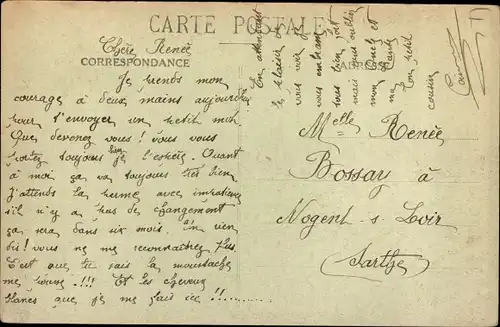 CARTE POSTALE
Chère Renée
CORRESPONDANCE
Je prends mon
courage à deux mains aujourd'hui
pour t'envoyer un petit mot
Que devenez vous ! vous vous
portez toujours bien je l'espère. Quant
à moi ça va toujours très bien
J'attends la perme avec impatience
s'il n'y a pas de changement
ça sera dans six mois. En rien
dis ! vous ne me reconnaitrez plus
C'est que tu sais la moustache
me pousse !!! Et les cheveux
blancs que je me fais ici !!.........
En attendant
le plaisir de
vous voir je
vous embrasse
tous bien fort
mais sans oublier
mon Oncle et
ma Tante
Ton petit
cousin
Melle Renée
Bossay à
Nogent s. Loir
Sarthe